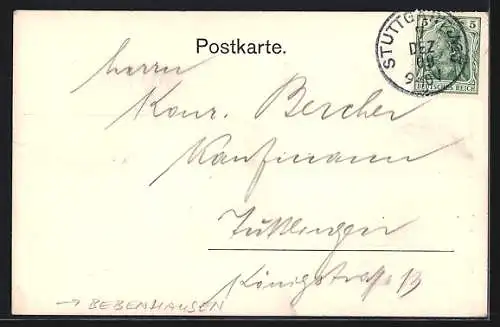 Postkarte.
STUTTG
DEZ
09
5
DEUTSCHES REICH
Herrn
Konr. Bercher
Kaufmann
Tuttlingen
Königstraße 13
→ BEBENHAUSEN